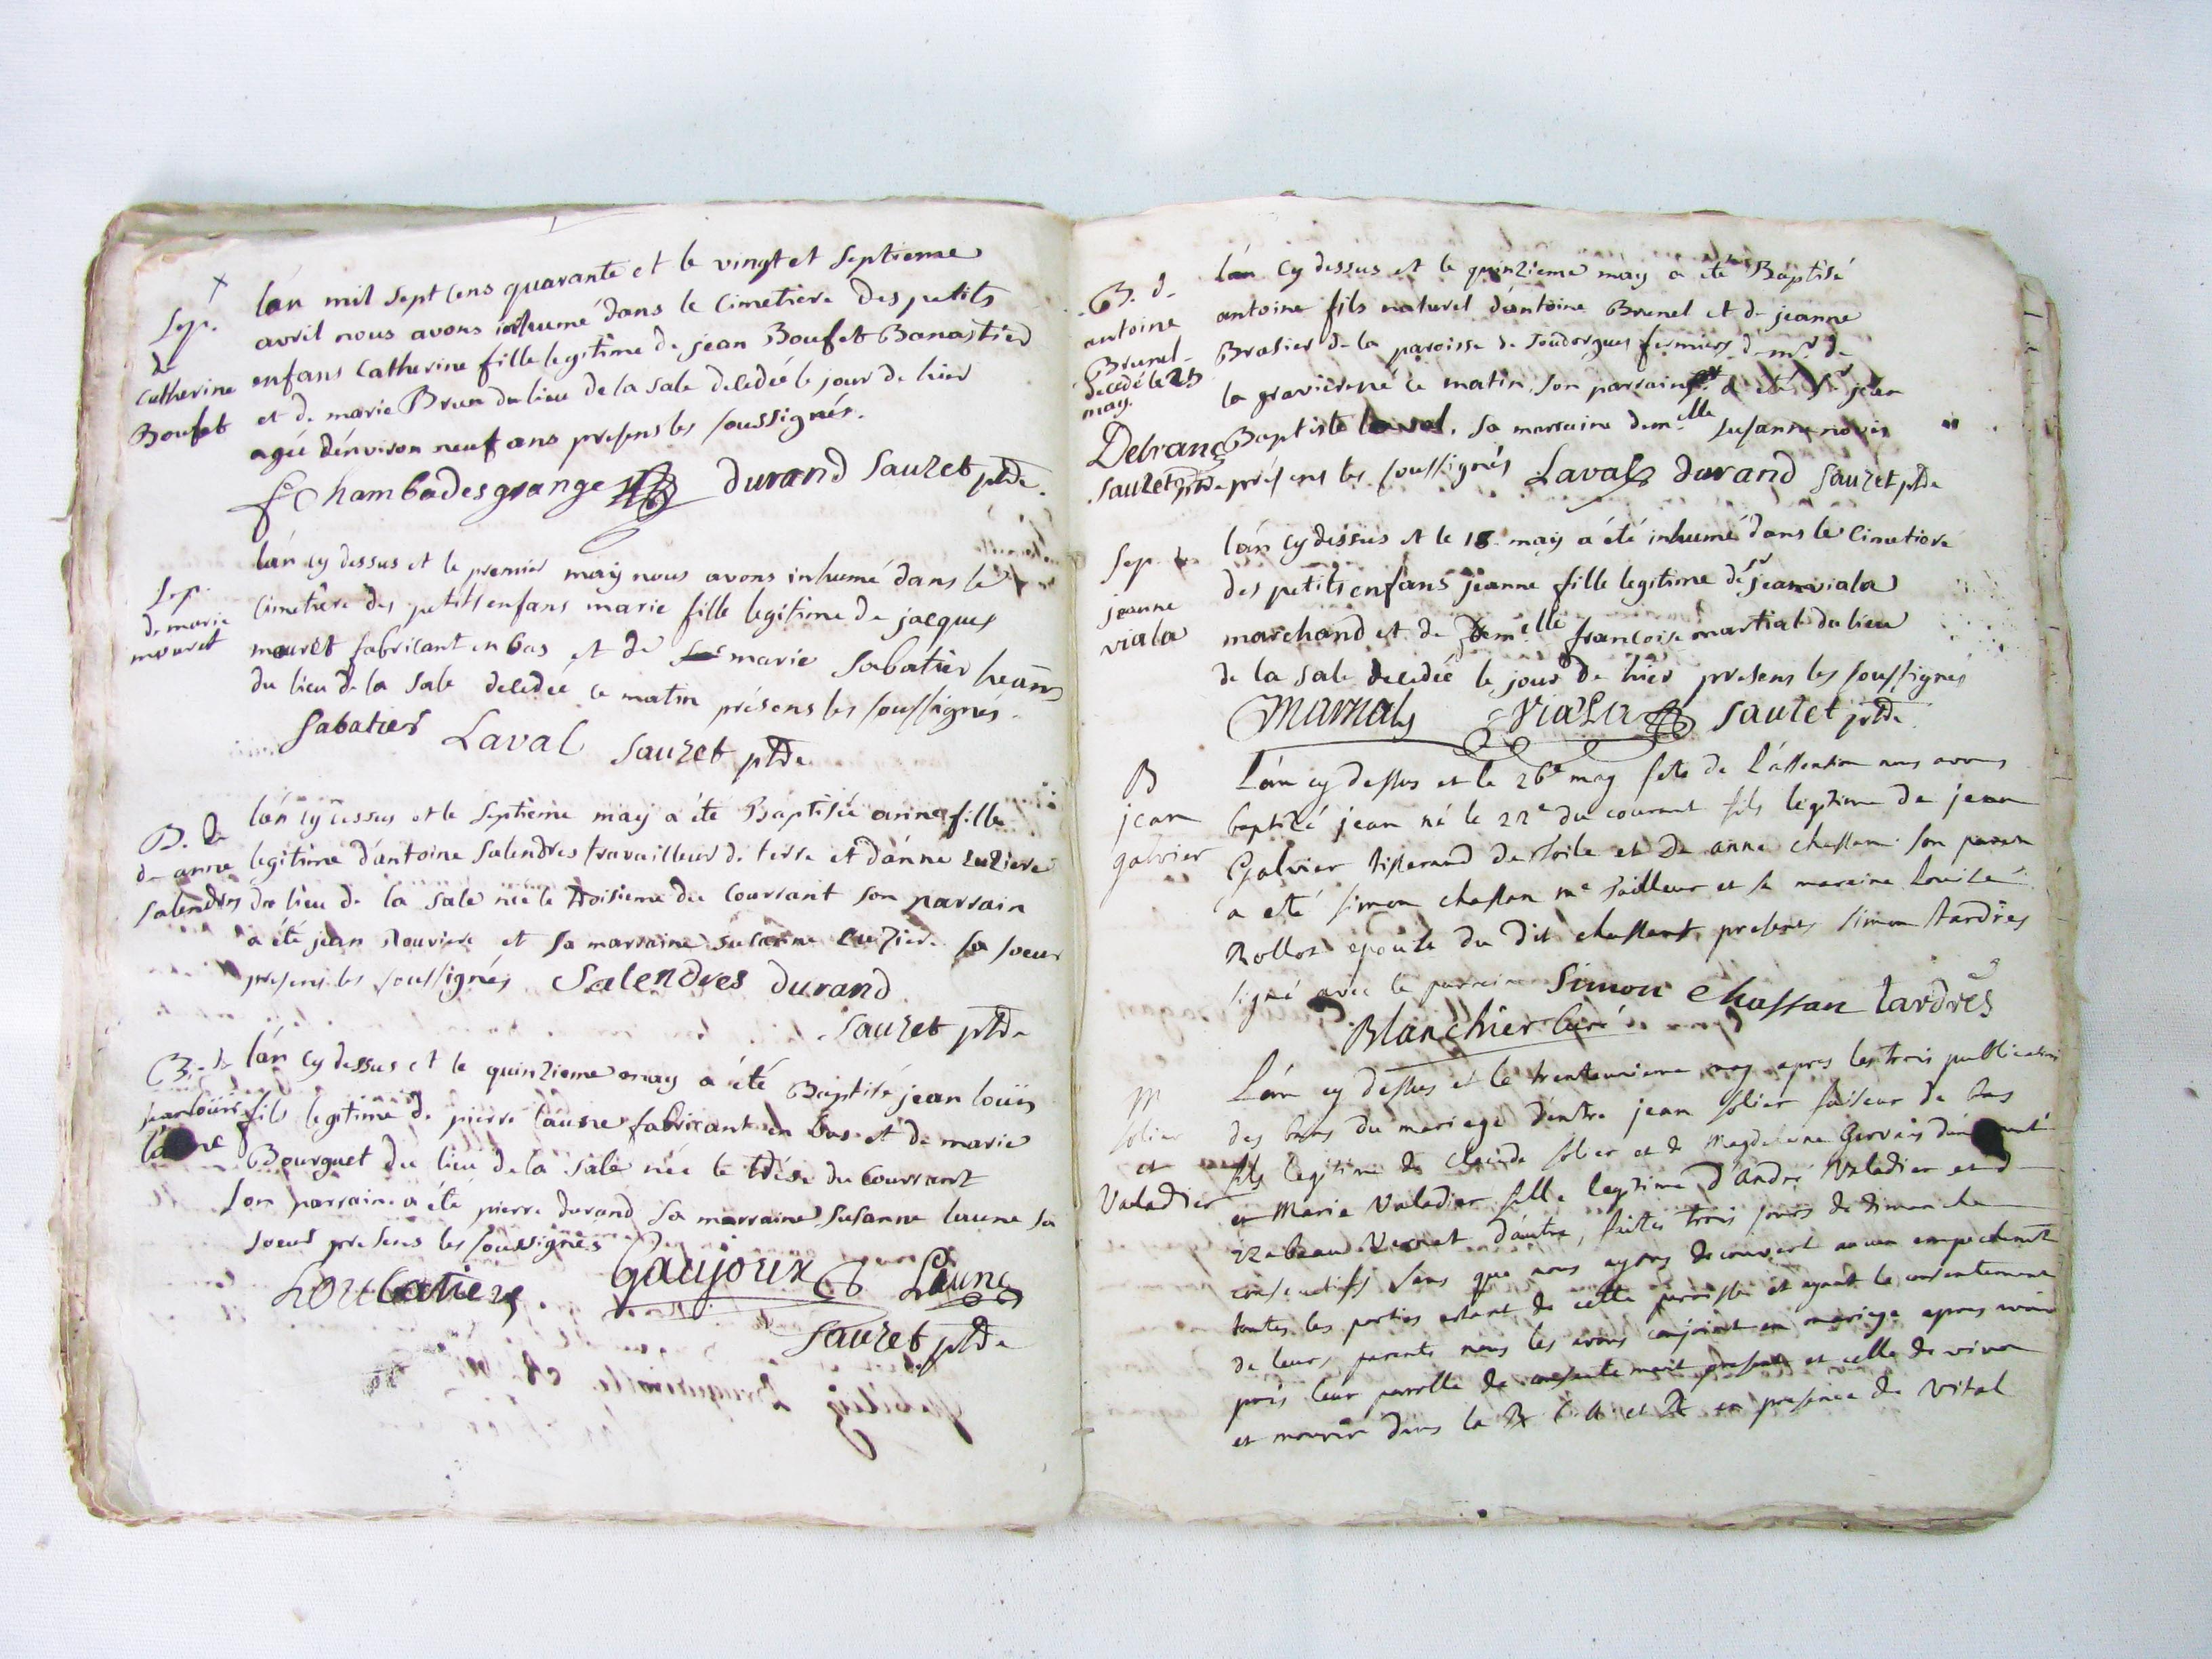 Sep.
de
Catherine
Boufet
lán mil sept cens quarante et le vingt et septieme
avril nous avons inhumé dans le cimetiere des petits
enfans Catherine fille legitime de jean Boufet Banastier
et de marie Brun du lieu de la sale decedée le jour de hier
agée dénviron neuf ans presens les soussignés.
Chambadesgrange durand Sauzet ptre
Sep.
de marie
mouret
lán cy dessus et le premier may nous avons inhumé dans le
cimetiere des petits enfans marie fille legitime de jacques
mouret fabricant en bas et de marie Sabatier
du lieu de la sale decedée ce matin présens les soussignés.
Sabatier Laval Sauzet ptre
B. de
de anne
salendres
lán cy dessus et le septieme may a éte Baptisée anne fille
legitime d'antoine salendres travailleur de terre et d'anne luziere
du lieu de la sale née le troisieme du courrant son parrain
a été jean Rouviere et sa marraine susanne luziere sa soeur
presens les soussignés Salendres durand
Sauzet ptre
B. de
jean louis
laune
lán cy dessus et le quinzieme may a été Baptisé jean louis
fils legitime de pierre laune fabricant en bas et de marie
Bourguet du lieu de la sale née le trése du courrant
son parrain a été pierre durand sa marraine susanne laune sa
soeur presens les soussignés
Loubatiere Gaujoux Laune
Sauzet ptre
B. d.
antoine
Brunel
decedé le 25
may.
lán cy dessus et le quinzieme may a été Baptisé
antoine fils naturel dántoine Brunel et de jeanne
Brasier de la paroisse de soudorgues fermiers de mr. de
la graviere né ce matin. son parrain a été sr jean
Baptiste laval. sa marraine demelle susanne novis
présens les soussignés Laval durand Sauzet ptre
Debranc
Sauzet ptre
Sep. de
jeanne
viala
lán cy dessus et le 18 may a été inhumé dans le cimetiere
des petits enfans jeanne fille legitime de sr jean viala
marchand et de demelle francoise martial du lieu
de la sale decedée le jour de hier presens les soussignés
Viala Sauzet ptre
B
jean
galvier
Lán cy dessus et le 26e may fete de l'assention nous avons
baptizé jean né le 22e du courant fils legitime de jean
Galvier tisserand de toile et de anne chassan son parrin
a eté simon chassan me tailleur et sa mareine Louize
Rollos epouse du dit chassant presens simon tardres
signé avec le parrain Simon Chassan tardrés
Blanchier curé
M
solier
et
Valadier
Lán cy dessus et le trentunieme may apres les trois publications
des bans du mariage d'entre jean solier faiseur de bas
fils legitime de claude solier et de Magdelene Gervais
et Marie Valadier fille legitime d'André Valadier et d
izabeau Vernet d'autre, faites trois jours de dimanche
consecutifs sans que nous ayons decouvert aucun empechemt
toutes les parties estant de cette paroisse et ayant le consentement
de leurs parents nous les avons conjoint en mariage apres avoir
pris leur parolle de consentement present et celle de vivre
et mourir dans la R C A et R en presence de Vital